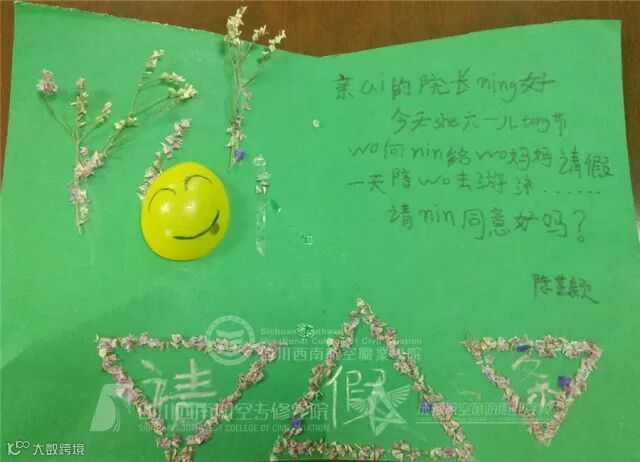 亲ai的院长ning好
今天she六一儿tong节
wo向nin给wo妈妈请假
一天陪wo去游泳......
请nin同意好吗?
陈芸颖
请 假 条
四川西南航空職業学院
Sichuan Southwest Vocational College of Civil Aviation
四川西南航空专修学院
SICHUAN SOUTHWEST COLLEGE OF CIVIL AVIATION
大数跨境